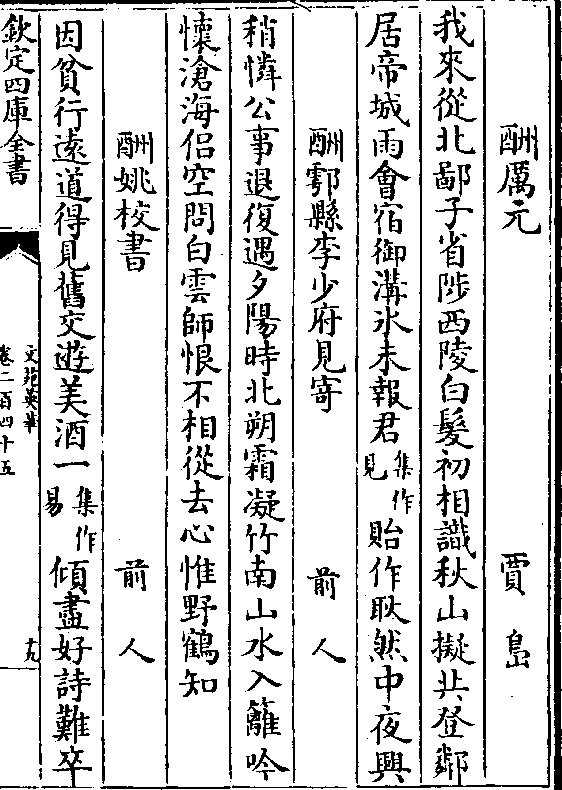 酬厲元　賈島
我來從北鄙子省陟西陵白髮初相識秋山擬共登鄰
居帝城雨會宿御溝氷未報君集作見貽作耿然中夜興
酬鄠縣李少府見寄　前人
稍憐公事退復遇夕陽時北朔霜凝竹南山水入籬吟
懷滄海侶空問白雲師恨不相從去心惟野鶴知
酬姚校書　前人
因貧行逺道得見舊交遊美酒一集作易傾盡好詩難卒
欽定四庫全書
文苑英華
卷二百四十五
十九